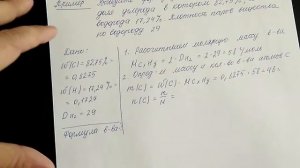 доля углерода в котором 82,75%,
водорода 17,24%. Плотность паров вещества
по водороду 29
Дано:
W(C) = 82,75% =
= 0,8275
W(H) = 17,24% =
= 0,1724
D H₂ = 29
Формула в-ва
1. Рассчитаем молярную массу в-ва
M CxHy = 2 · D H₂ = 2 · 29 = 58 г/моль
2. Определ массу и кол-во в-ва атомов C
m(C) = W(C) · M CxHy = 0,8275 · 58 = 48
n(C) = m/M =